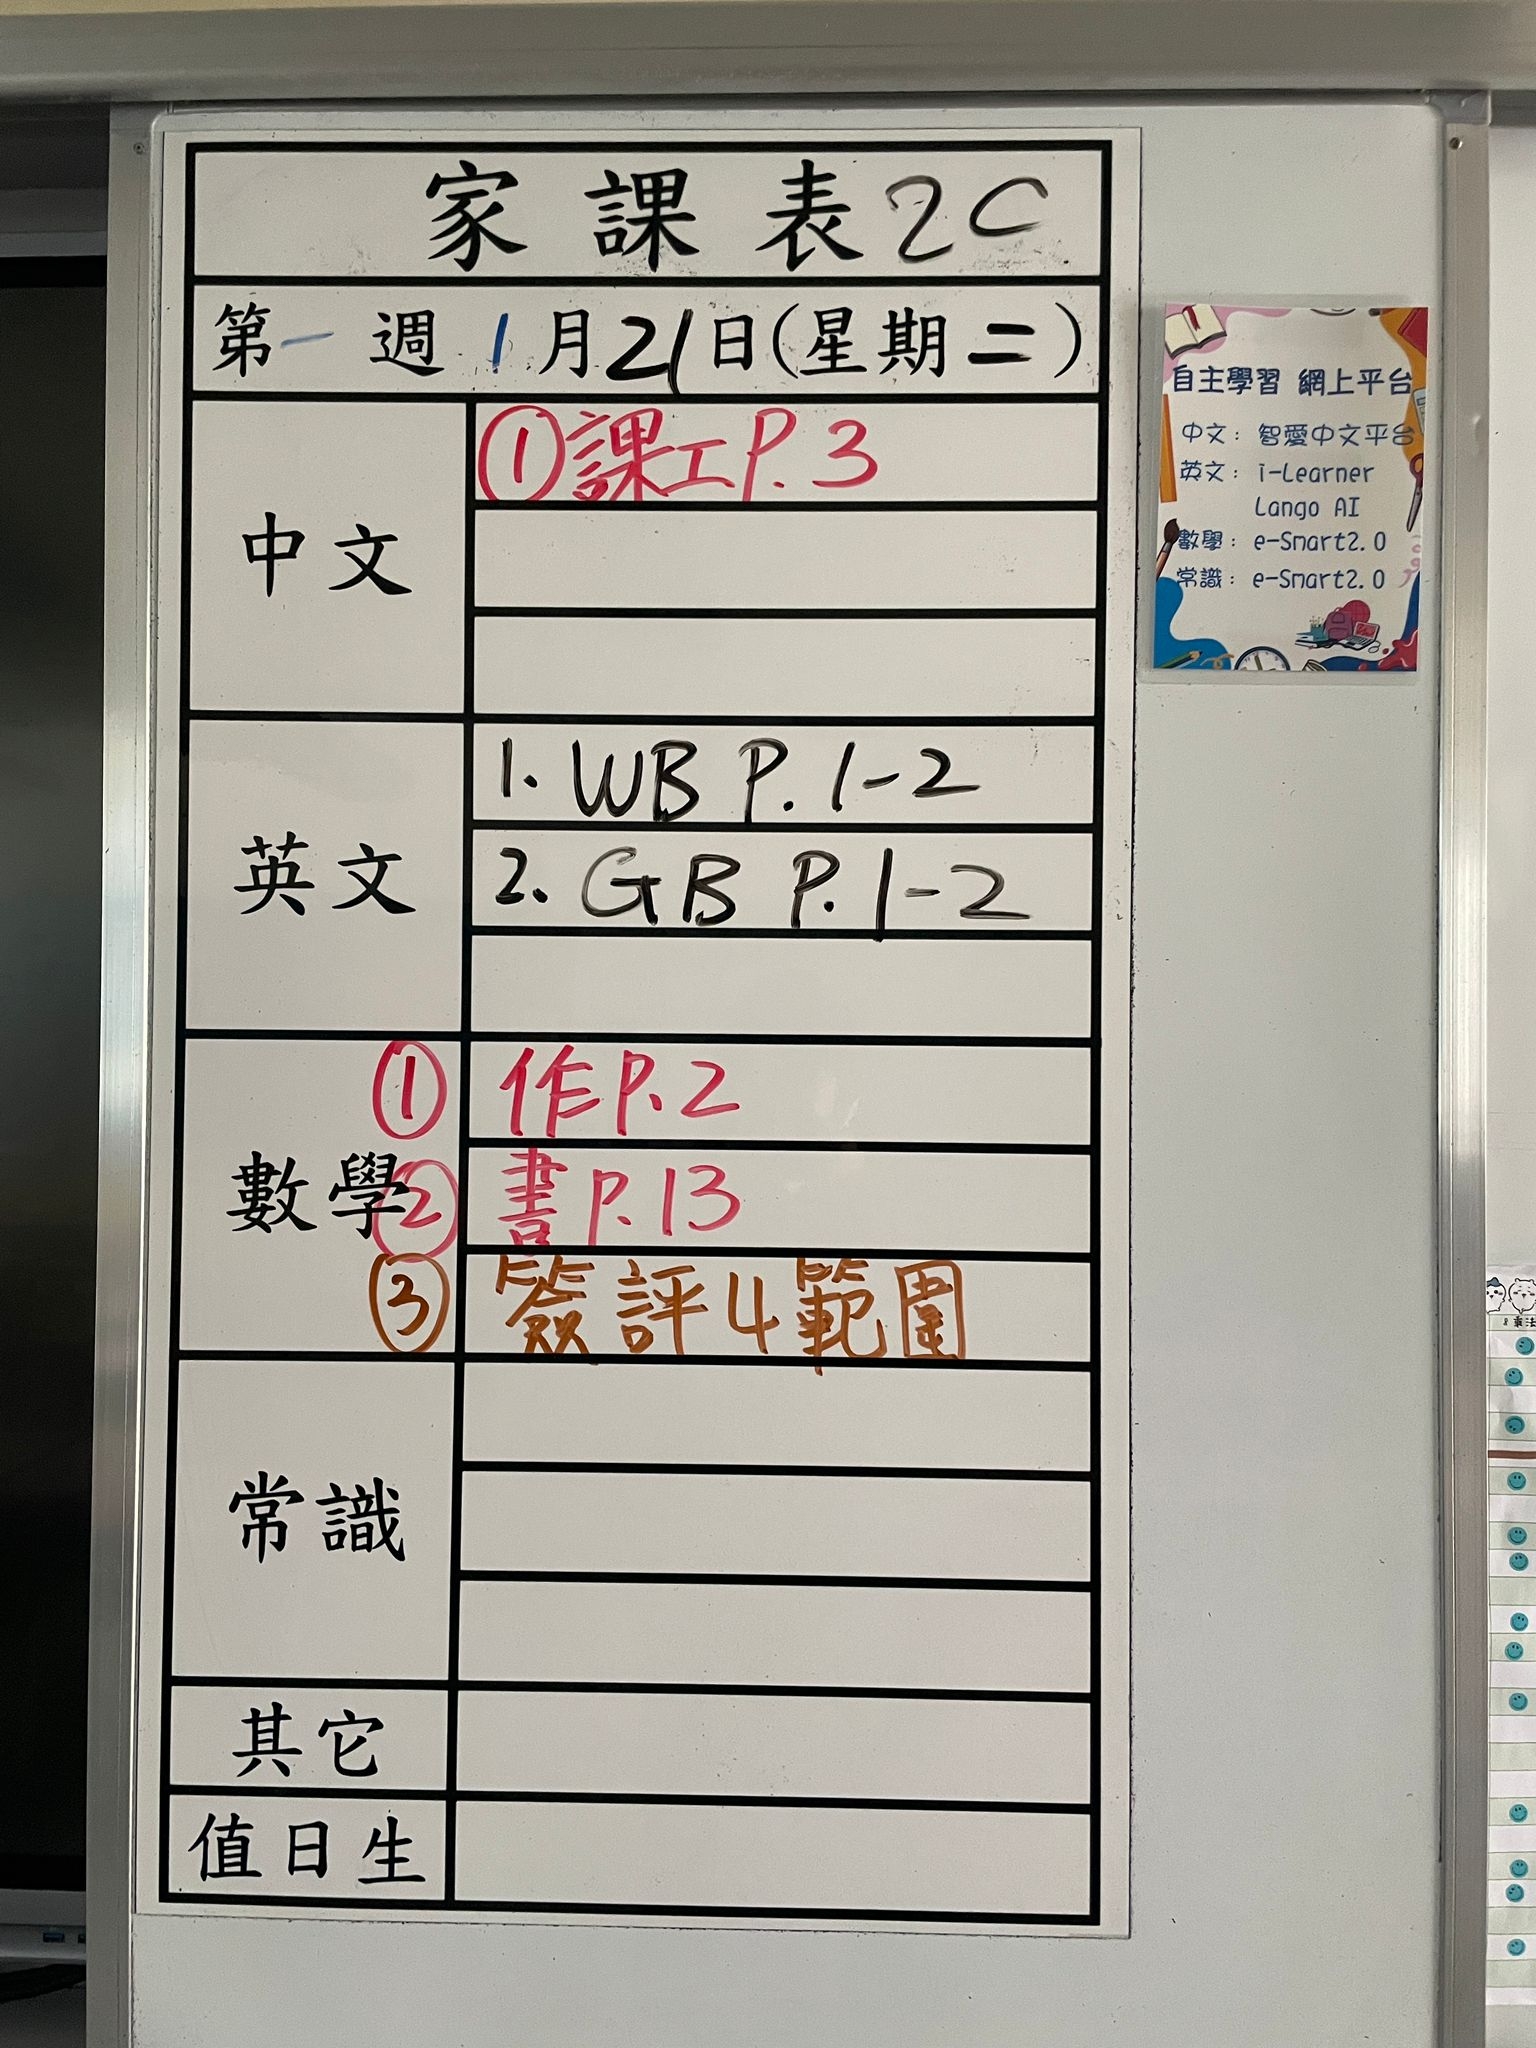 家課表 2C
第一週 1月21日(星期二)
中文
①課工P.3
英文
1. WB P.1-2
2. GB P.1-2
數學
① 作P.2
② 書P.13
③ 簽評4範圍
常識
其它
值日生
自主學習 網上平台
中文：智愛中文平台
英文：i-Learner
Lango AI
數學：e-Smart2.0
常識：e-Smart2.0